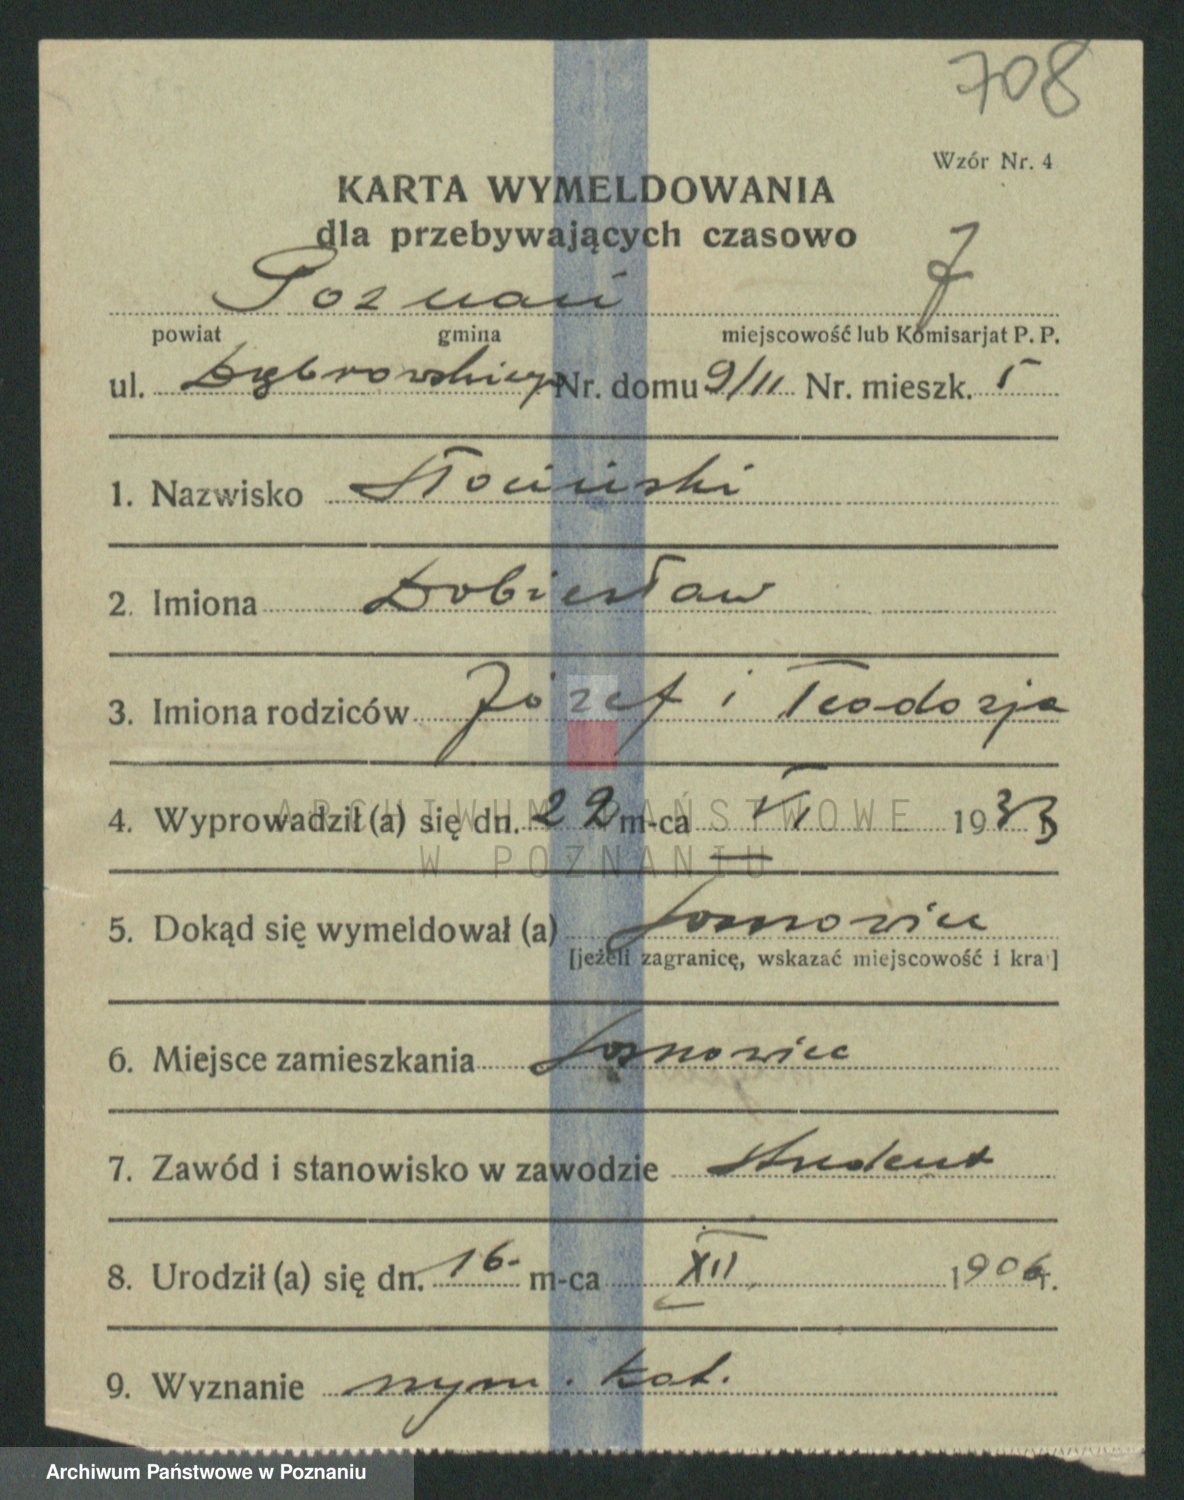 708
Wzór Nr. 4
KARTA WYMELDOWANIA
dla przebywających czasowo
Poznań
powiat gmina miejscowość lub Komisarjat P. P.
ul. Dąbrowskiego Nr. domu 9/11 Nr. mieszk. 5
1. Nazwisko
2. Imiona Dobiesław
3. Imiona rodziców Józef i Teodozja
4. Wyprowadził (a) się dn. 22 m-ca VI 1933
ARCHIWUM PAŃSTWOWE
W POZNANIU
5. Dokąd się wymeldował (a) Sosnowiec
[jeżeli zagranicę, wskazać miejscowość i kraj]
6. Miejsce zamieszkania Sosnowiec
7. Zawód i stanowisko w zawodzie student
8. Urodził (a) się dn. 16. m-ca XII 1906 r.
9. Wyznanie rzym. kat.
Archiwum Państwowe w Poznaniu